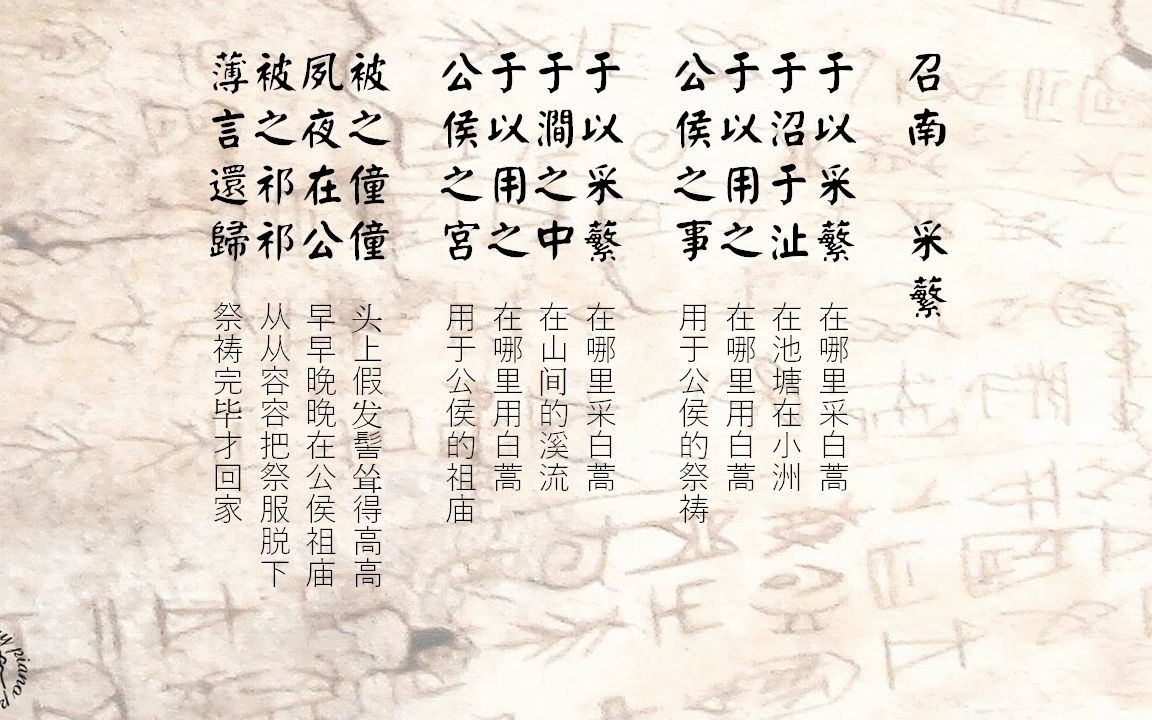 召南 采蘩
于以采蘩
于沼于沚
于以用之
公侯之事
在哪里采白蒿
在池塘在小洲
在哪里用白蒿
用于公侯的祭祷
于以采蘩
于澗之中
于以用之
公侯之宮
在哪里采白蒿
在山间的溪流
在哪里用白蒿
用于公侯的祖庙
被之僮僮
夙夜在公
被之祁祁
薄言還歸
头上假发髻耸得高高
早早晚晚在公侯祖庙
从从容容把祭服脱下
祭祷完毕才回家
piano